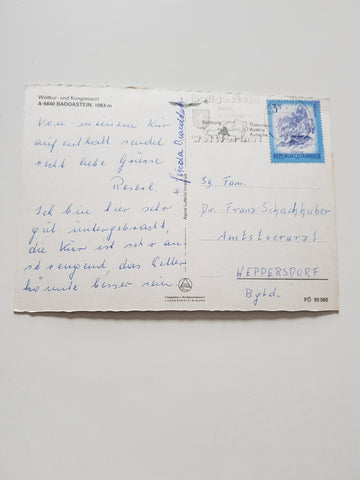 Weltkur- und Kongressort
A-5640 BADGASTEIN, 1083 m
Von meinem Kur
aufenthalt sendet
recht liebe Grüsse
Reserl.
Ich bin hier sehr
gut untergebracht,
die Kur ist sehr an-
strengend, das Wetter
könnte besser sein
Badgastein
Salzburg
Österreich
Austria
Autriche
Weltberühmt
S 3
REPUBLIK ÖSTERREICH
Sg. Fam.
Dr. Franz Schachhuber
Amtstierarzt
WEPPERSDORF
Bgld.
FÖ 65585